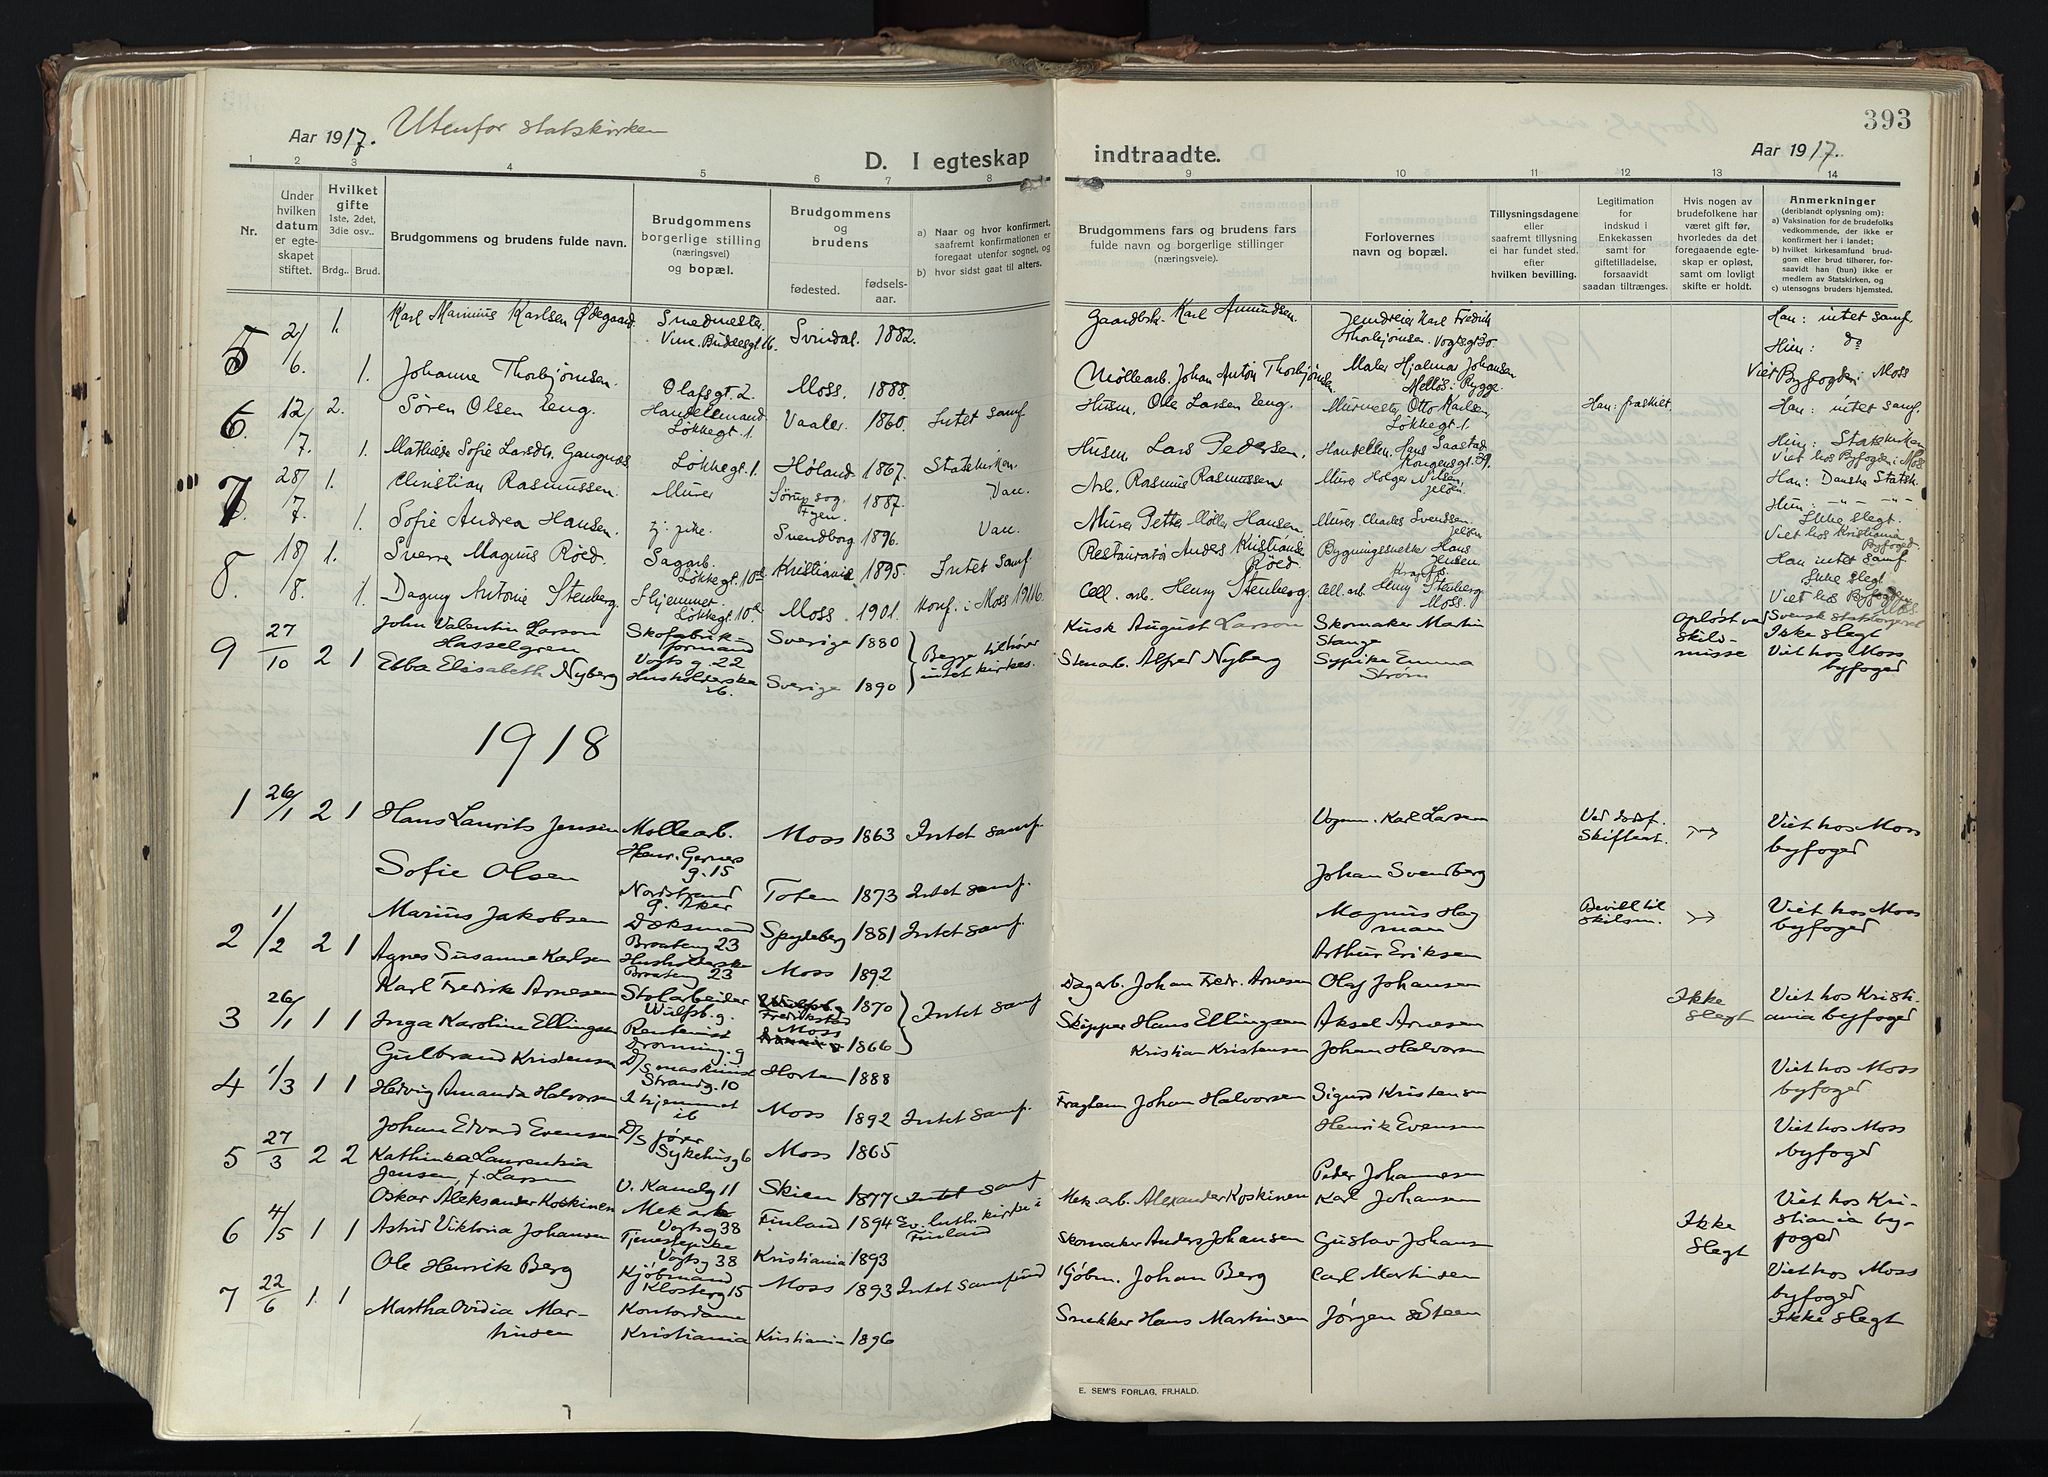 Aar 1917. Utenfor statskirken
D. I egteskap
1 2 3 4 5 6 7 8
Nr.
Under hvilken datum er egteskapet stiftet.
Hvilket gifte 1ste, 2det, 3die osv..
Brdg.. Brud.
Brudgommens og brudens fulde navn.
Brudgommens borgerlige stilling (næringsvei) og bopæl.
Brudgommens og brudens
fødested. fødselsaar.
a) Naar og hvor konfirmert, saafremt konfirmationen er foregaat utenfor sognet, og
b) hvor sidst gaat til alters.
5 2/6. 1. Karl Marinius Karlsen Ødegaard Smedmester. Svindal. 1882.
Vinc. Buddesgt. 16.
1. Johanne Thorbjørnsen. Olafsgt. 2. Moss. 1888.
6. 12/7. 2. Søren Olsen Eng. Handelsmand. Vaaler. 1860. Intet samf
Løkkegt. 1.
1. Mathilde Sofie Larsdtr. Gangnæs. Løkkegt. 1. Høland 1867. Statskirken.
7 28/7. 1. Christian Rasmussen. Murer Sørup sog. Fyen. 1887. Van.
1. Sofie Andrea Hansen. Svendborg 1896. Van.
8. 18/8. 1. Sverre Magnus Røed. Sagarb. Kristiania. 1895. Intet samf.
Løkkegt. 10
1. Dagny Antonie Stenberg. Hjemmet. Moss. 1901. Konf. i Moss 1916.
Løkkegt. 10
9 27/10 2 1 John Valentin Larson Skofabrik- Sverige 1880
Hasselgren formand
Vogts g. 22 Begge tilhører
Ebba Elisabeth Nyberg Husholderske Sverige 1890 intet kirkes.
ib.
1918
1 26/1 2 1 Hans Laurits Jensen Møllearb. Moss 1863 Intet samf.
Henr. Gerners
g. 15
Sofie Olsen Nordstrand Toten 1873 Intet samf.
g. Aker
2 1/2 2 1 Marius Jakobsen Dæksmand Spydeberg 1881 Intet samf.
Braateng 23
Agnes Susanne Karlsen Husholderske Moss 1892
Braateng 23
3 26/1 1 1 Karl Fredrik Arnesen Stolarbeider Fredrikstad 1870 Intet samf
Wulfsb. g.
Inga Karoline Ellingsen Rentenist Moss 1866
Dronning. g
4 1/3 1 1 Gulbrand Kristensen D/s maskinist Horten 1888
Strandg. 10
Hedvig Amanda Halvorsen I hjemmet Moss 1892 Intet samf.
ib
5 27/3 2 2 Johan Edvard Evensen D/s fører Moss 1865
Sykehusg 6
Kathinka Laurentsia
Jensen, f. Larsen V. Kanalg 11 Skien 1877 Intet samf
6 4/5 1 1 Oskar Aleksander Koskinen Mek arb Finland 1894 Ev. luth. kirke i
Vogtsg 38 Finland
Astrid Viktoria Johansen Tjenestepike Kristiania 1893
Vogtsg 38
7 22/6 1. 1 Ole Henrik Berg Kjøbmand Moss 1893 Intet samfund
Klosterg 15
Martha Ovidia Mar- Kontordame
tinsen Kristiania Kristiania 1896
393
indtraadte. Aar 1917.
9 10 11 12 13 14
Brudgommens fars og brudens fars fulde navn og borgerlige stillinger (næringsveie).
Forlovernes navn og bopæl.
Tillysningsdagene eller saafremt tillysning ei har fundet sted, efter hvilken bevilling.
Legitimation for indskud i Enkekassen samt for giftetilladelse, forsaavidt saadan tiltrænges.
Hvis nogen av brudefolkene har været gift før, hvorledes da det foregaaende egteskap er opløst, samt om lovligt skifte er holdt.
Anmerkninger
(deriblandt oplysning om):
a) Vaksination for de brudefolks vedkommende, der ikke er konfirmert her i landet;
b) hvilket kirkesamfund brudgom eller brud tilhører, forsaavidt han (hun) ikke er medlem av Statskirken, og
c) utensogns bruders hjemsted.
Gaardbr. Karl Amundsen. Jerndreier Karl Fredrik Han: intet samf.
Thorbjørnsen. Vogtsgt 30. Hun: do
Møllearb. Johan Anton Thorbjørnsen. Maler Hjalmar Johansen Viet Byfogden i Moss
Melløs i Rygge.
Husm. Ole Larsen Eng. Murmester Otto Karlsen, Han: fraskilt. Han: intet samf.
Løkkegt. 1.
Husm. Lars Pedersen. Handelsm. Hans Saastad Hun: Statskirken
Kongensgt. 39. Viet hos Byfogden i Moss
Arb. Rasmus Rasmussen. Murer Holger Nilsen, Han: Danske Statsk.
Jeløen. Hun: -"- -"-
Murer Petter Møller Hansen. Murer Charles Svenssen. Ikke slegt.
Jeløen Viet hos Kristiania Byfoged.
Restauratør Anders Kristiansen Røed. Bygningssnekker Hans Jensen Han intet samf
Ikke slegt
Cell. arb. Henry Stenberg. Cell. arb. Henry Stenberg Viet hos Byfogden
Moss. Moss.
Kusk August Larson Skomaker Martin opløst ved Svensk statsborger
Stange skils- Ikke slegt
Stenarb. Alfred Nyberg Sypike Emma misse Viet hos Moss
Strøm byfoged
Vognm. Karl Larsen Ved dødsf. Viet hos Moss
Skifteat. byfoged
Johan Svendberg
Magnus Hag Bevill til Viet hos Moss
man skilsm. byfoged
Arthur Eriksen
Dagarb. Johan Fredr. Arnesen Olaf Johansen Ikke Viet hos Kristi-
Skipper Hans Ellingsen Aksel Arnesen slegt ania byfoged
Kristian Kristensen Johan Halvorsen Viet hos Moss
byfoged
Johan Halvorsen Sigurd Kristensen
Henrik Evensen Viet hos Moss
byfoged
Peder Johannesen
Mek arb. Alexander Koskinen Karl Johansen Ikke Viet hos Kri-
slegt stiania by-
Skomaker Anders Johansen Gustav Johans foged
Kjøbm. Johan Berg Carl Martinsen Viet hos Moss
byfoged
Snekker Hans Martinsen Jørgen Steen Ikke slegt
E. SEM'S FORLAG, FR.HALD.